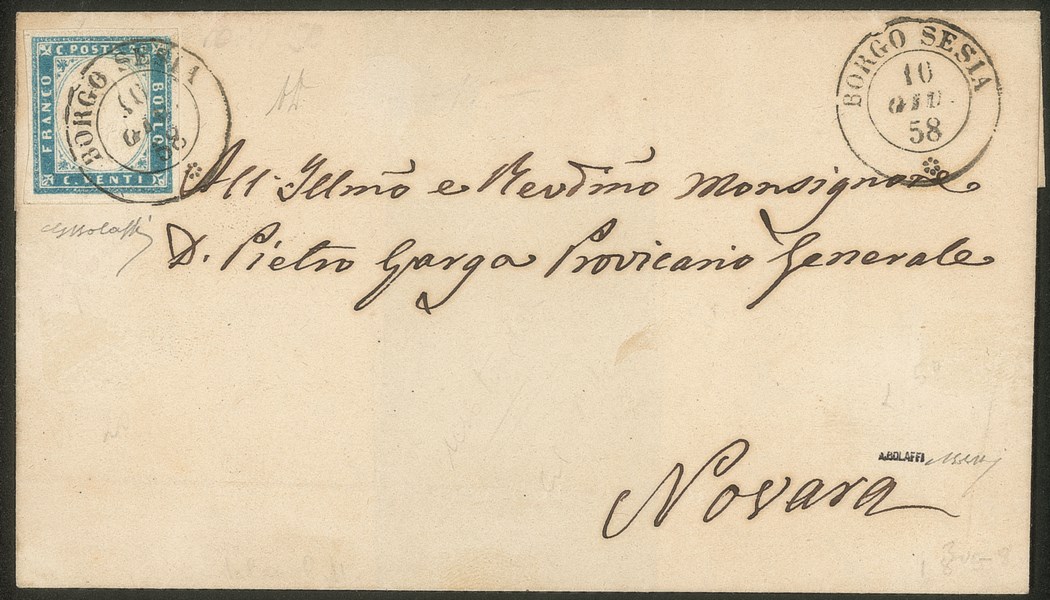 C. POSTE 20
FRANCO
BOLLO
C. VENTI
BORGO SESIA
10
GIU
58
BORGO SESIA
10
GIU.
58
All' Illmo e Revdmo Monsignore
D. Pietro Garga Provicario Generale
Novara
A.BOLAFFI